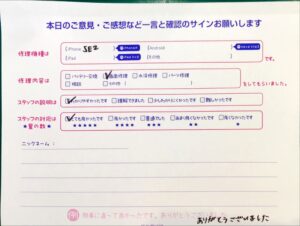 本日のご意見・ご感想など一言と確認のサインお願いします
修理機種は
iPhone SE2
Android
iPad
その他
です。
修理内容は
バッテリー交換 画面修理 水没修理 パーツ修理
相談 その他
をしてもらいました。
スタッフの説明は
わかりやすかったです 理解できました 少しわかりにくかったです 難しかったです
スタッフの対応は
とても良かったです 良かったです 普通でした あまり良くなかったです 良くなかったです
★星の数★
★★★★★ ★★★★ ★★★ ★★ ★
ニックネーム:
ありがとうございました